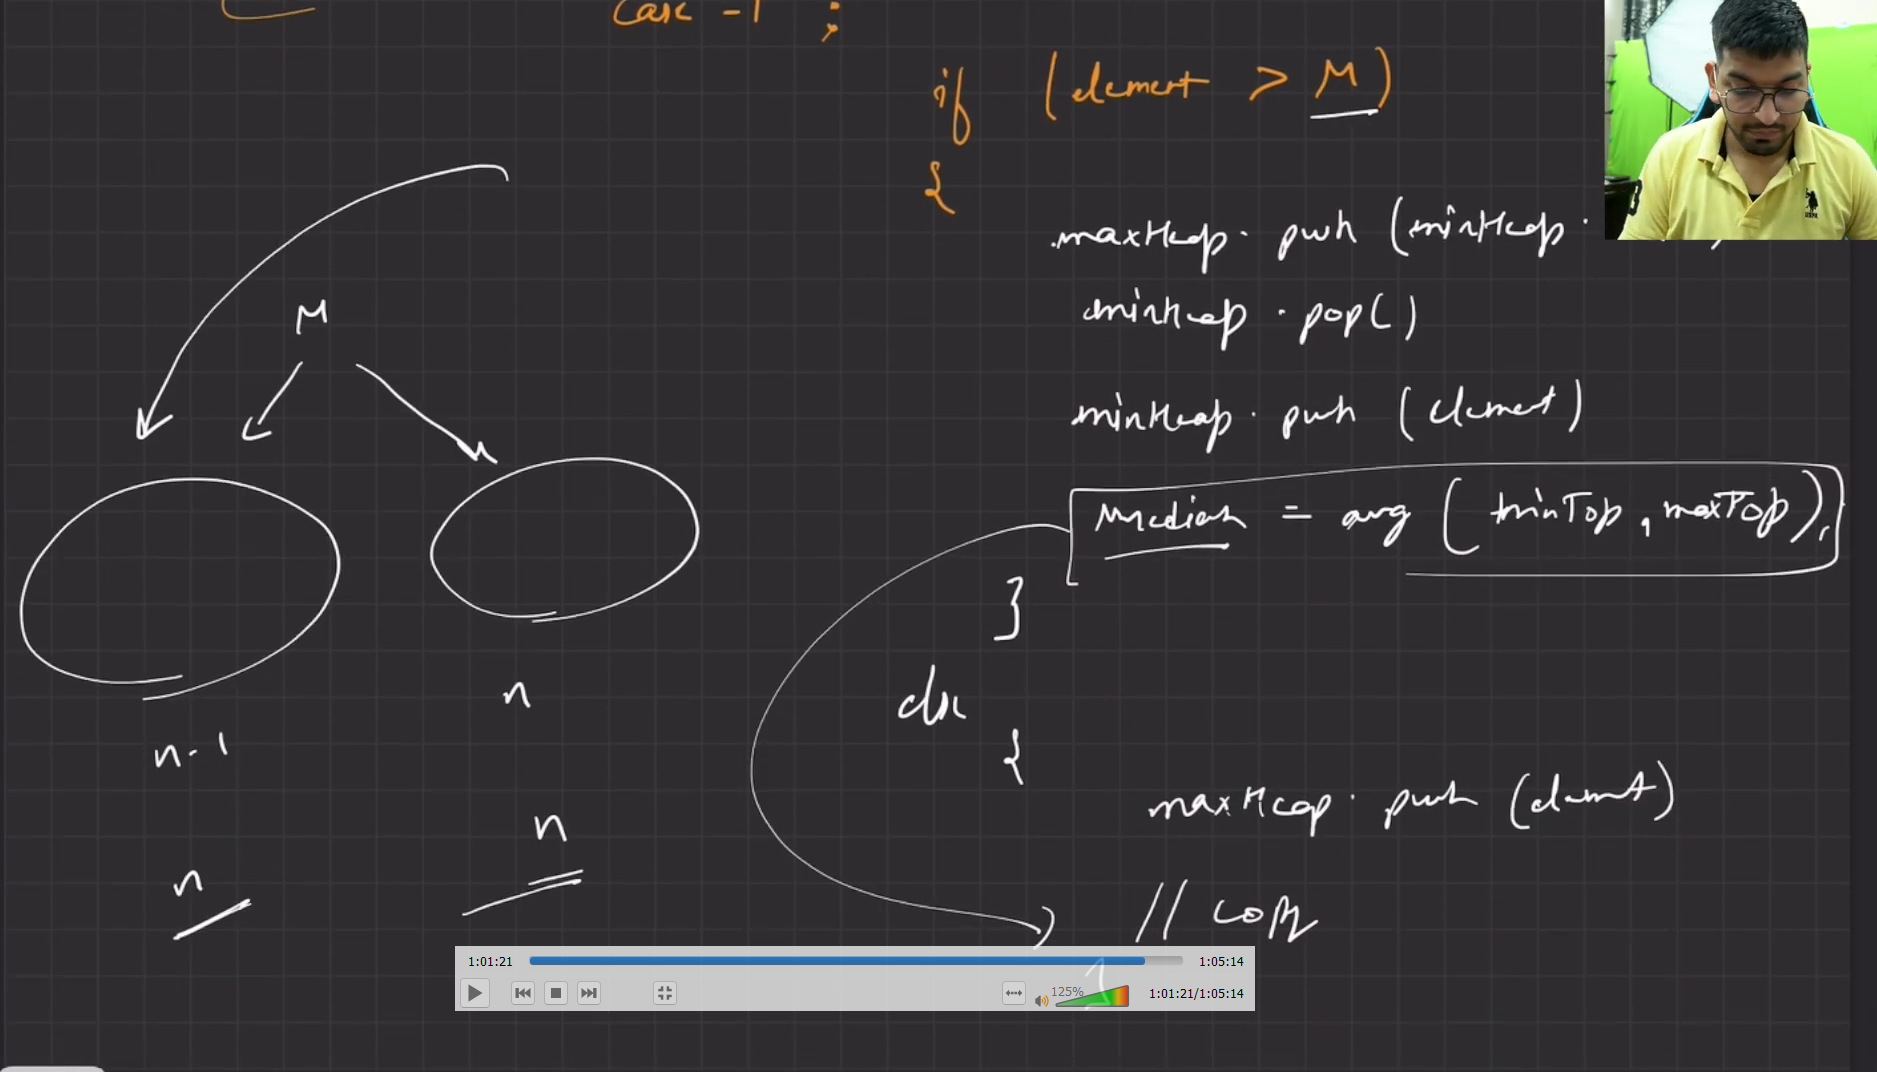 Case -1 ;
if (element > M)
{
maxHeap. push (minHeap.
minHeap. pop()
minHeap. push (element)
Median = avg (minTop, maxTop);
}
else
{
maxHeap. push (element)
// copy
M
n-1
n
n
n
1:01:21
1:05:14
125%
1:01:21/1:05:14